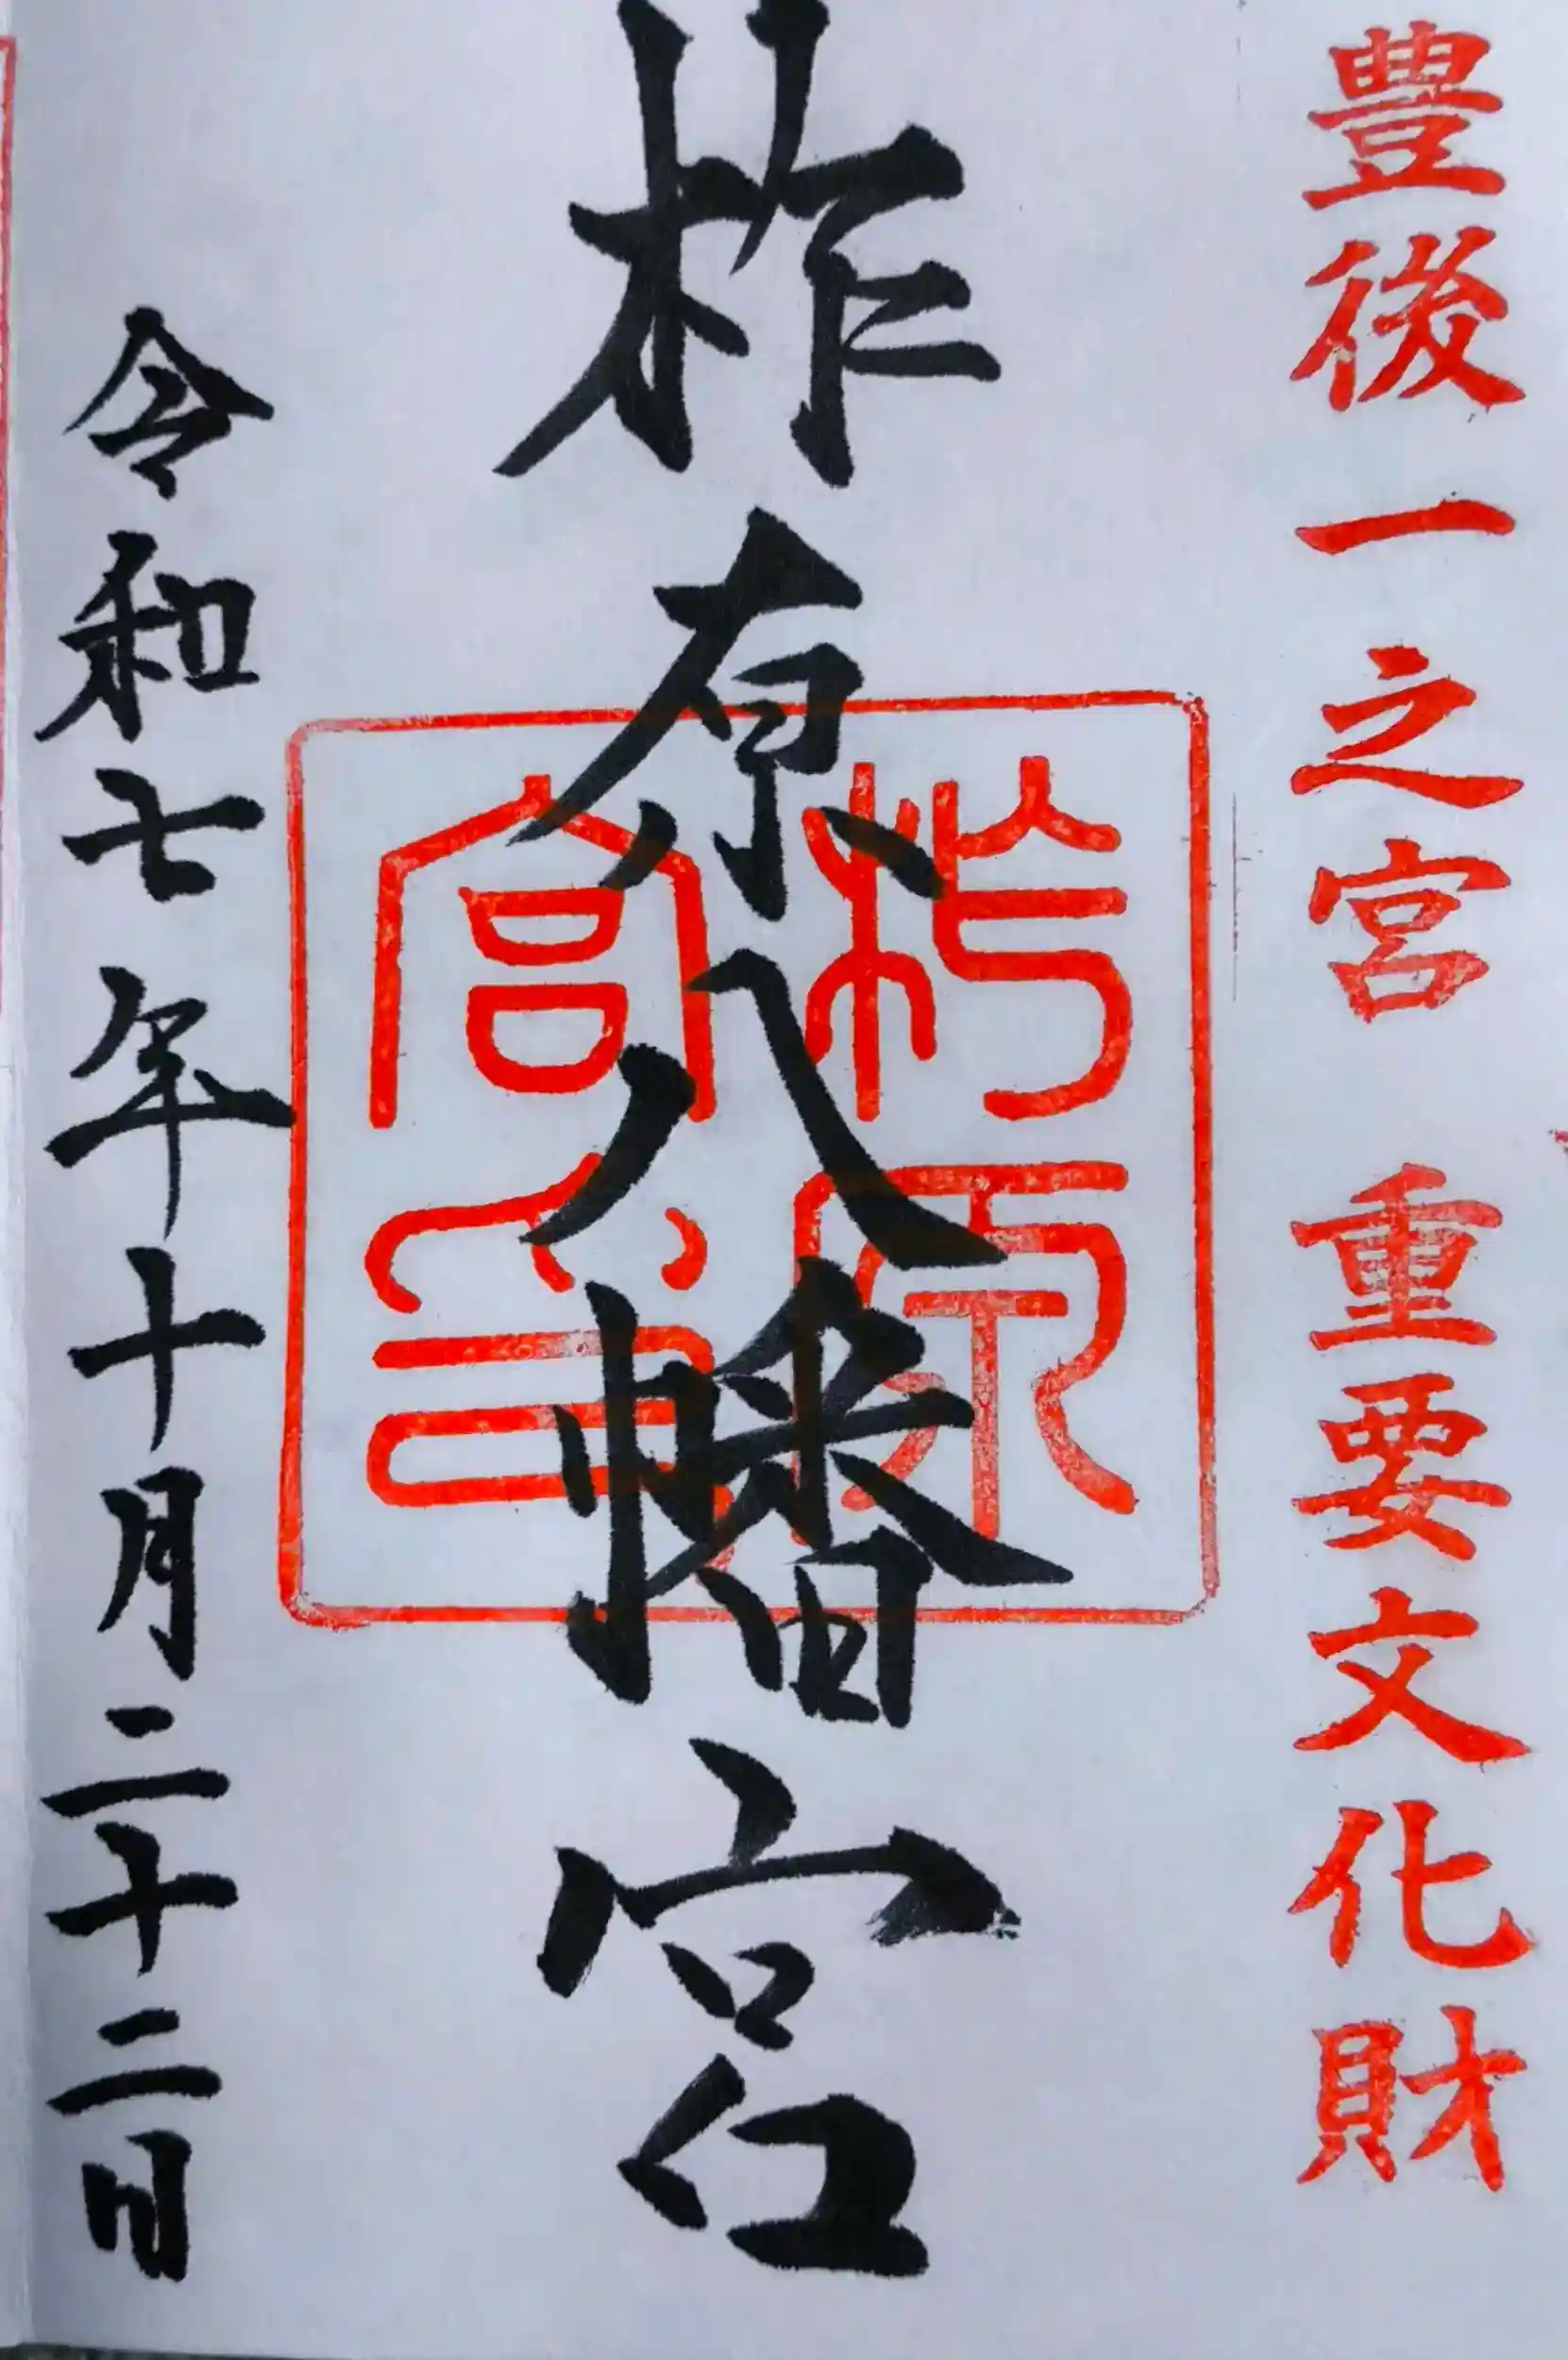 豊後一之宮　重要文化財
柞原八幡宮
柞原宮印
令和七年十月二十二日